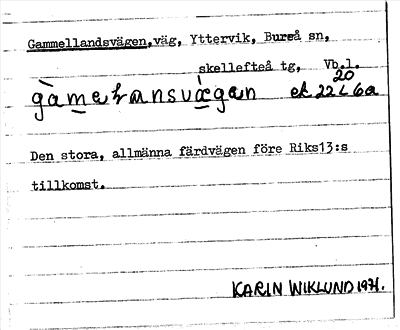 Gammellandsvägen, väg, Yttervik, Bureå sn,
skellefteå tg, Vb.l.
20
ek 22 L 6a
Den stora, allmänna färdvägen före Riks13:s
tillkomst.
KARIN WIKLUND 1971.